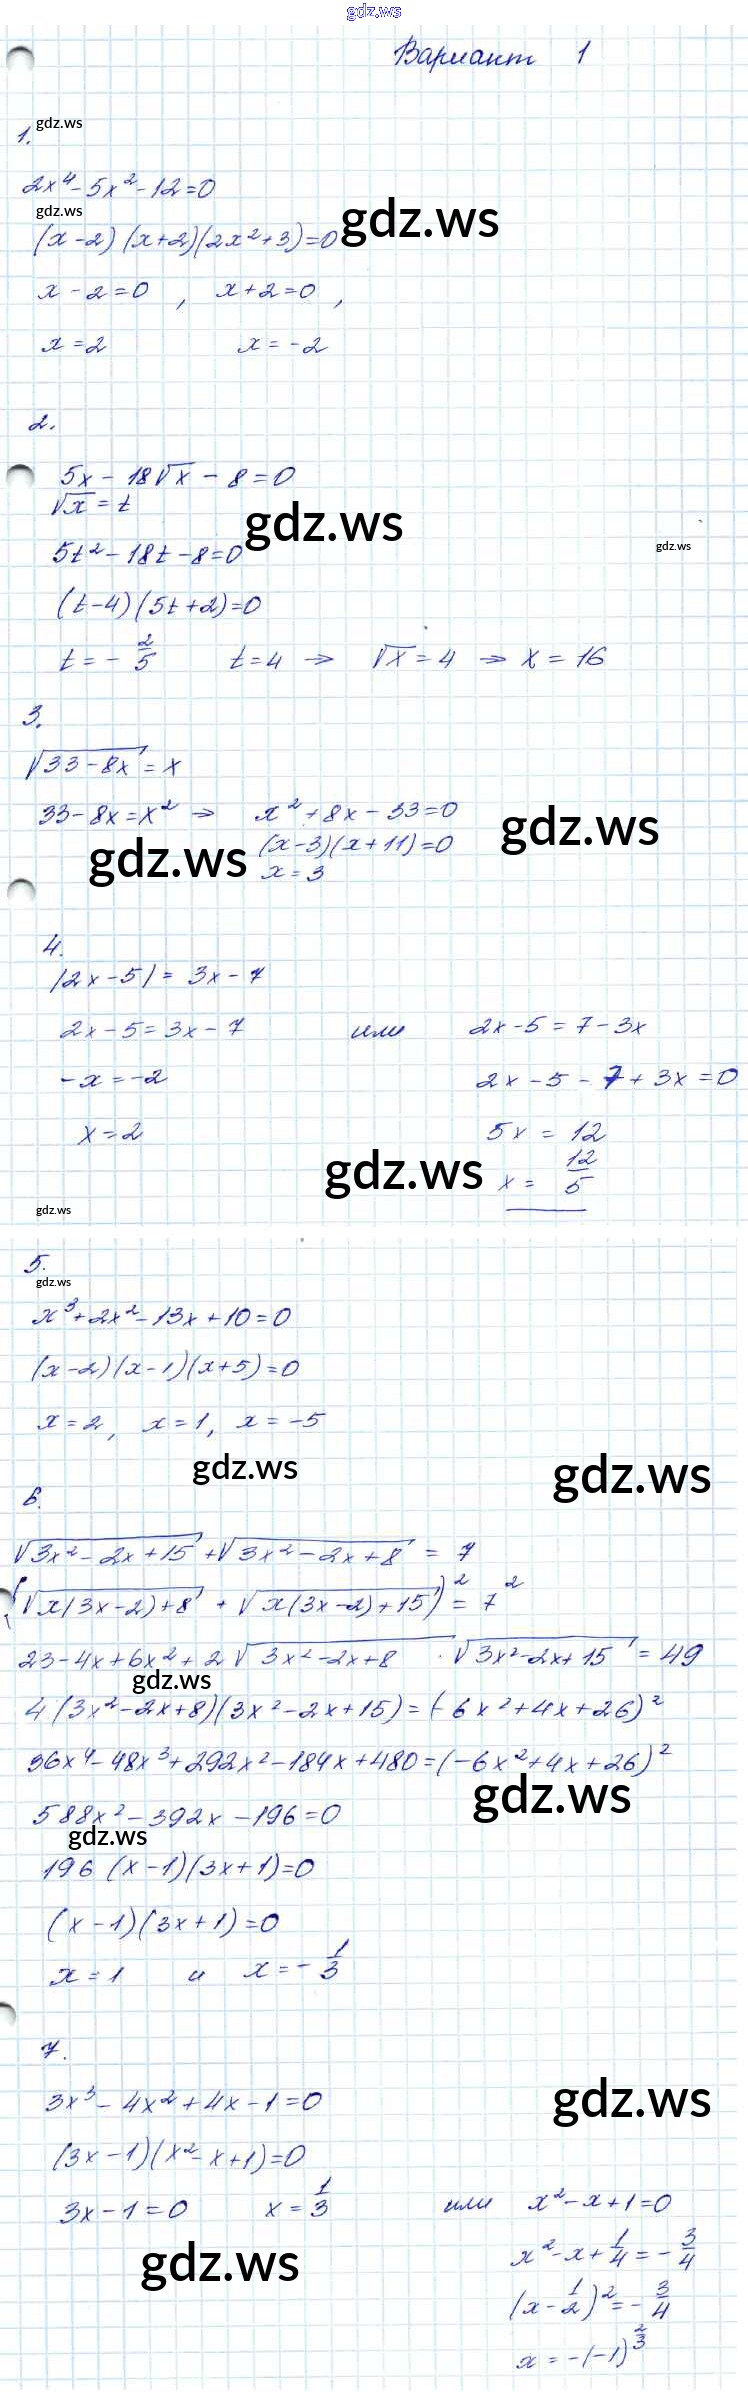 gdz.ws
Вариант 1
1.
gdz.ws
2x⁴ - 5x² - 12 = 0
gdz.ws
gdz.ws
(x - 2)(x + 2)(2x² + 3) = 0
x - 2 = 0 , x + 2 = 0 ,
x = 2 x = -2
2.
5x - 18√x - 8 = 0
√x = t
gdz.ws
5t² - 18t - 8 = 0
gdz.ws
(t - 4)(5t + 2) = 0
t = - 2/5 t = 4 ⇒ √x = 4 ⇒ x = 16
3.
√(33 - 8x) = x
33 - 8x = x² ⇒ x² + 8x - 33 = 0
gdz.ws
(x - 3)(x + 11) = 0
gdz.ws
x = 3
4.
|2x - 5| = 3x - 7
2x - 5 = 3x - 7 или 2x - 5 = 7 - 3x
-x = -2 2x - 5 - 7 + 3x = 0
x = 2 5x = 12
gdz.ws
x = 12/5
gdz.ws
5.
gdz.ws
x³ + 2x² - 13x + 10 = 0
(x - 2)(x - 1)(x + 5) = 0
x = 2 , x = 1 , x = -5
gdz.ws
gdz.ws
6.
√(3x² - 2x + 15) + √(3x² - 2x + 8) = 7
(√(x(3x - 2) + 8) + √(x(3x - 2) + 15))² = 7²
23 - 4x + 6x² + 2√(3x² - 2x + 8) · √(3x² - 2x + 15) = 49
gdz.ws
4(3x² - 2x + 8)(3x² - 2x + 15) = (-6x² + 4x + 26)²
36x⁴ - 48x³ + 292x² - 184x + 480 = (-6x² + 4x + 26)²
gdz.ws
588x² - 392x - 196 = 0
gdz.ws
196 (x - 1)(3x + 1) = 0
(x - 1)(3x + 1) = 0
x = 1 и x = - 1/3
7.
gdz.ws
3x³ - 4x² + 4x - 1 = 0
(3x - 1)(x² - x + 1) = 0
3x - 1 = 0 x = 1/3 или x² - x + 1 = 0
gdz.ws
x² - x + 1/4 = - 3/4
(x - 1/2)² = - 3/4
x = -(-1)^(2/3)